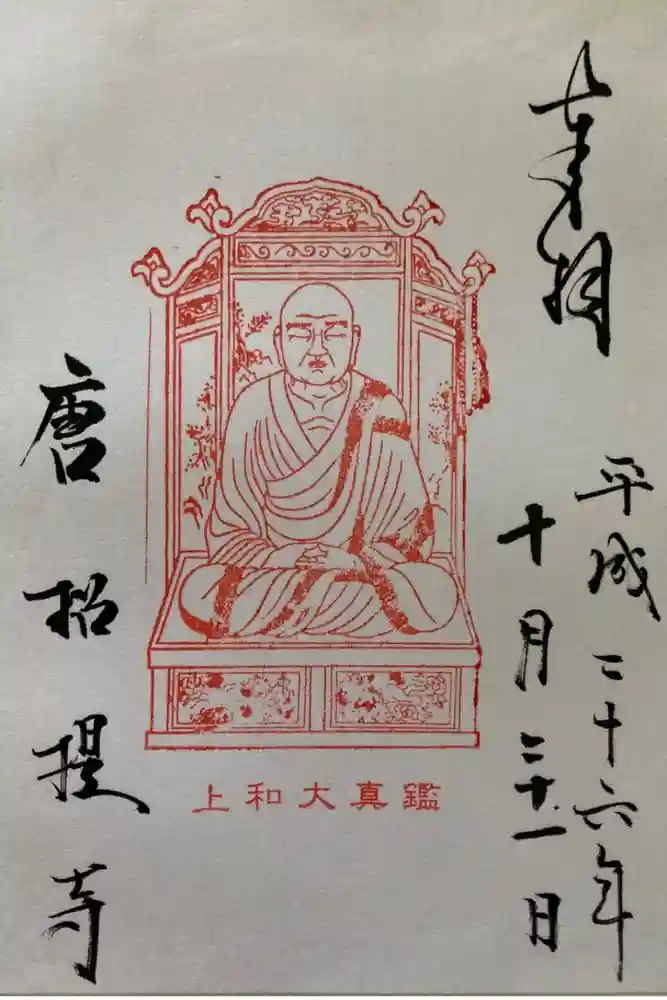 奉拝
平成二十六年
十月三十一日
鑑真大和上
唐招提寺